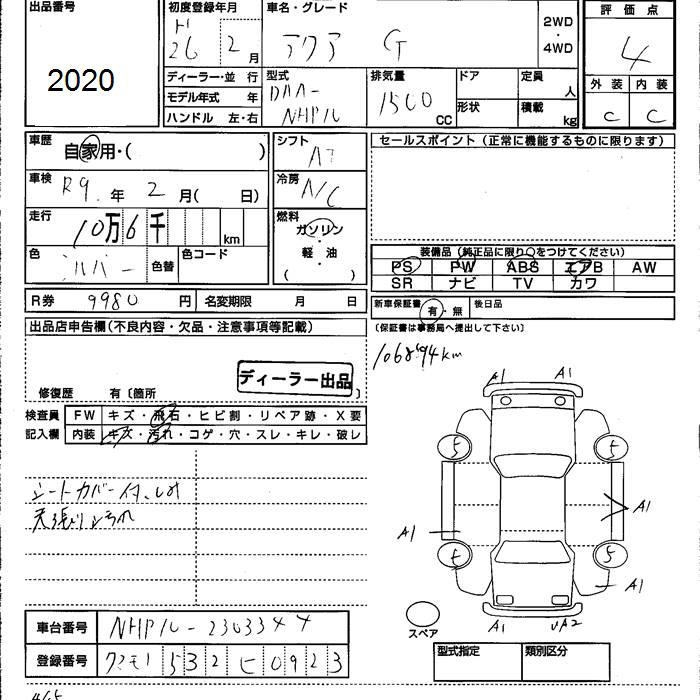 出品番号
2020
初度登録年月
H 26 2月
車名・グレード
アクア G
2WD
・
4WD
評価点
4
外装 内装
C C
ディーラー・並行
モデル年式 年
ハンドル 左・右
型式
DAA-
NHP10
排気量
1500
CC
ドア
形状
定員
人
積載
kg
車歴
自家用・( )
車検
R9.年 2月( 日)
走行
10万6千
km
色
シルバー
色替
色コード
シフト
AT
冷房
A/C
燃料
ガソリン
・
軽・油
( )
セールスポイント(正常に機能するものに限ります)
装備品(純正品に限り○をつけてください)
PS PW ABS エアB AW
SR ナビ TV カワ
R券 9980円
名変期限 月 日
新車保証書 有・無
後日品
(保証書は事務局へ提出して下さい)
出品店申告欄(不良内容・欠品・注意事項等記載)
106894km
ディーラー出品
修復歴 有〔箇所 〕
検査員
記入欄
FW キズ・飛石・ヒビ割・リペア跡・X要
内装 キズ・汚れ・コゲ・穴・スレ・キレ・破レ
シートカバー付、しみ
天張りよごれ
A1 A1
5 5
A1
A1
5 5
A1
A1
UA2
スペア
車台番号 NHP10-2303344
登録番号 クマモト 532 ヒ 0923
型式指定 類別区分